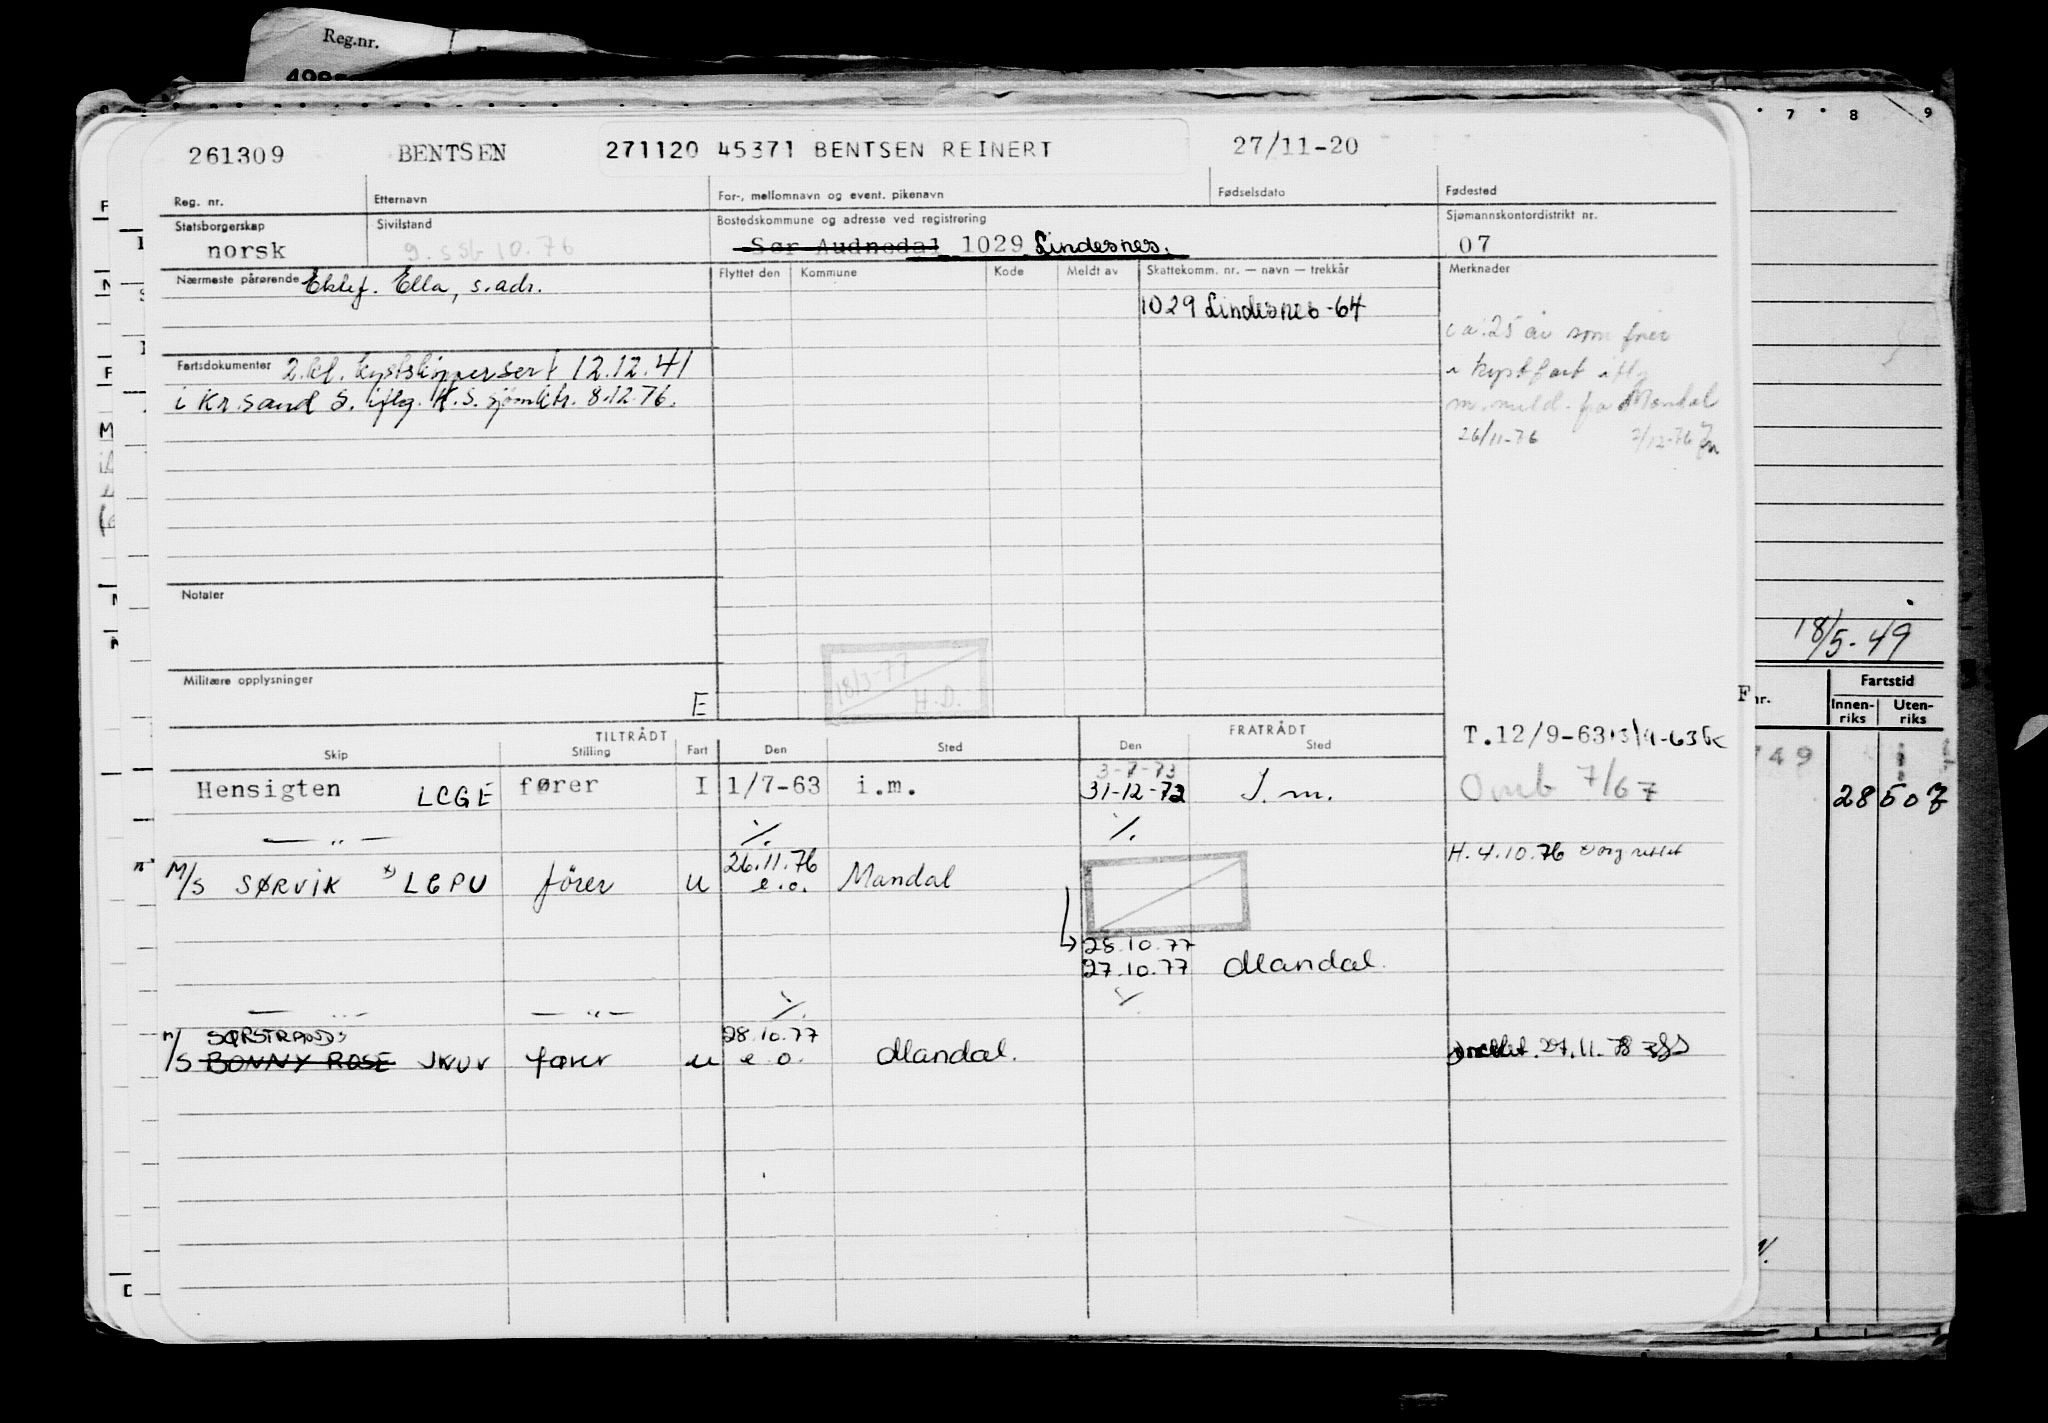 Reg.nr.
261309 BENTSEN 271120 45371 BENTSEN REINERT 27/11-20
Reg. nr. Etternavn For-, mellomnavn og event. pikenavn Fødselsdato Fødested
Statsborgerskap Sivilstand Bostedskommune og adresse ved registrering Sjømannskontordistrikt nr.
norsk g. s.st. 10.76 Sør Audnedal 1029 Lindesnes. 07
Nærmeste pårørende Ektef. Ella, s.adr. Flyttet den Kommune Kode Meldt av Skattekomm. nr. — navn — trekkår Merknader
1029 Lindesnes -64
ca. 25 år som fører
i kystfart iflg
m. meld. fra Mandal
26/11-76 7/12-76
Fartsdokumenter 2.kl. kystskippersert 12.12.41
i Kr.sand S. iflg. K.S. sjømktr. 8.12.76.
Notater
18/5-49
Militære opplysninger
E
18/3-77
H.D.
Fartstid
Innen-riks Uten-riks
TILTRÅDT FRATRÅDT
Skip Stilling Fart Den Sted Den Sted
T.12/9-63
Hensigten LCGE fører I 1/7-63 i.m. 3-7-73
31-12-72 I.m.
Omb 7/67
749
28 507
— " — ./. ./.
M/S SØRVIK x) LGPU fører U 26.11.76
e.o. Mandal
H. 4.10.76
28.10.77
27.10.77 Mandal.
— " — — " — ./. ./.
m/S SØRSTRAND
BONNY ROSE JXUV fører u 28.10.77
e.o. Mandal.
27.11.78